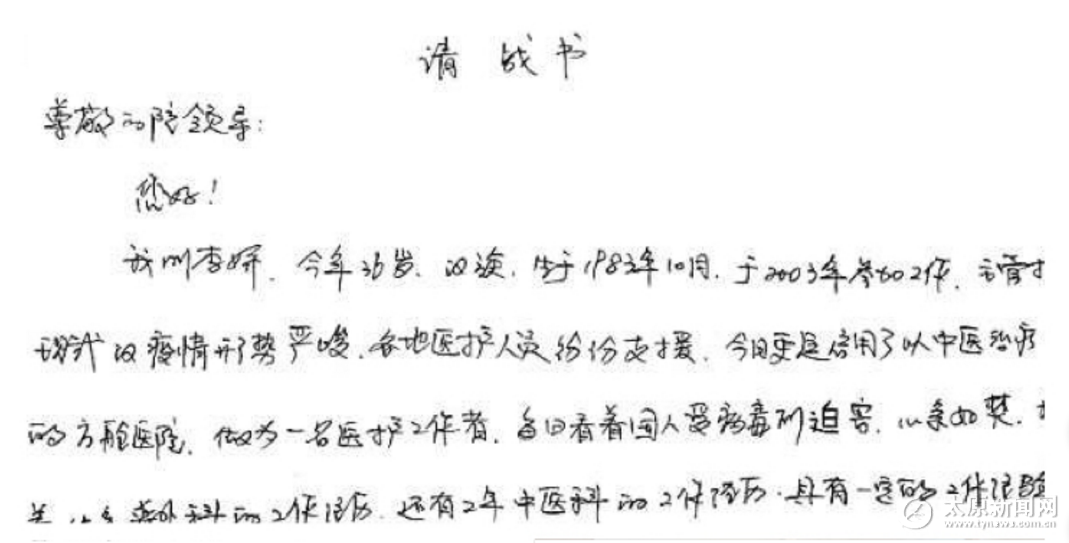 请战书
尊敬的院领导：
您好！
我叫李妍，今年36岁，汉族，生于1983年10月，于2003年参加工作，主管
现我武汉疫情形势严峻，各地医护人员纷纷支援，今日更是启用了以中医治疗
的方舱医院，做为一名医护工作者，每日看着国人受病毒所迫害，心急如焚，
外科的工作经历，还有2年中医科的工作经历，具有一定的工作经验
太原新闻网
www.tynews.com.cn